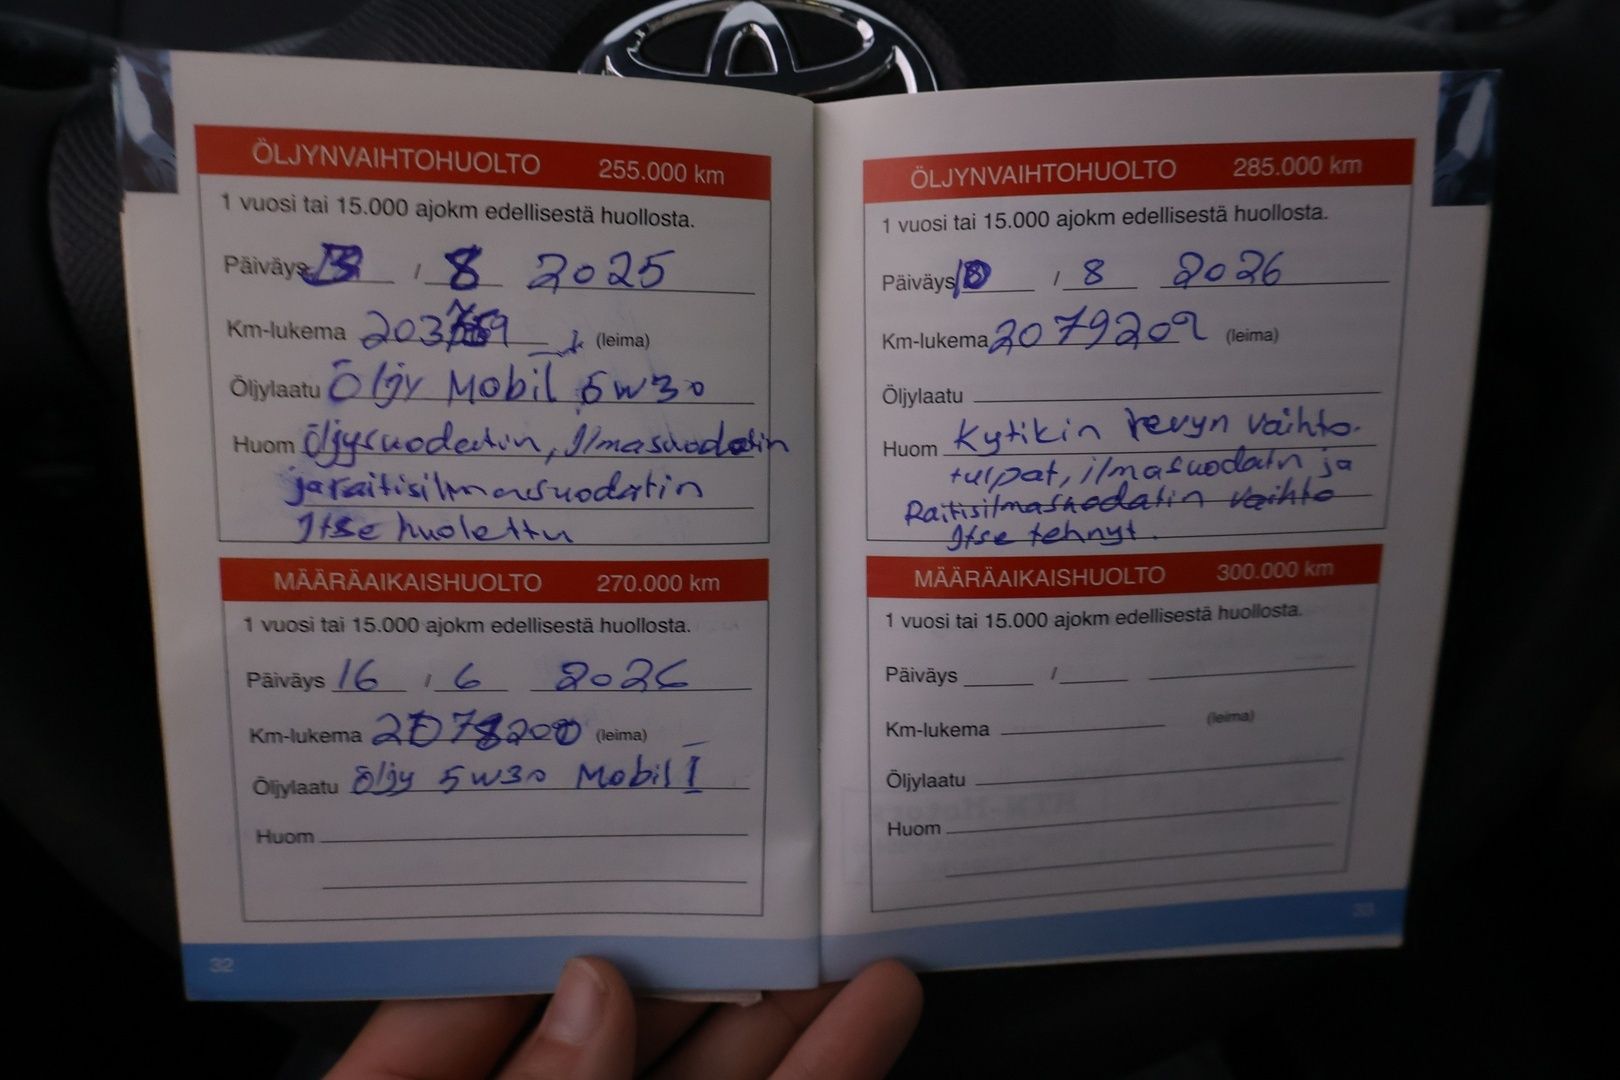 ÖLJYNVAIHTOHUOLTO 255.000 km
1 vuosi tai 15.000 ajokm edellisestä huollosta.
Päiväys / 8 2025
Km-lukema (leima)
Öljylaatu Öljy Mobil 5W30
Huom öljysuodatin, Ilmasuodatin
ja raitisilmasuodatin
Itse huolettu
MÄÄRÄAIKAISHUOLTO 270.000 km
1 vuosi tai 15.000 ajokm edellisestä huollosta.
Päiväys 16 / 6 2026
Km-lukema (leima)
Öljylaatu öljy 5W30 Mobil 1
Huom
32
ÖLJYNVAIHTOHUOLTO 285.000 km
1 vuosi tai 15.000 ajokm edellisestä huollosta.
Päiväys / 8 2026
Km-lukema 2079202 (leima)
Öljylaatu
Huom Kytikin vaihto.
tulpat, ilmasuodatn ja
Raitisilmasuodatin vaihto
Itse tehnyt.
MÄÄRÄAIKAISHUOLTO 300.000 km
1 vuosi tai 15.000 ajokm edellisestä huollosta.
Päiväys /
Km-lukema (leima)
Öljylaatu
Huom
33